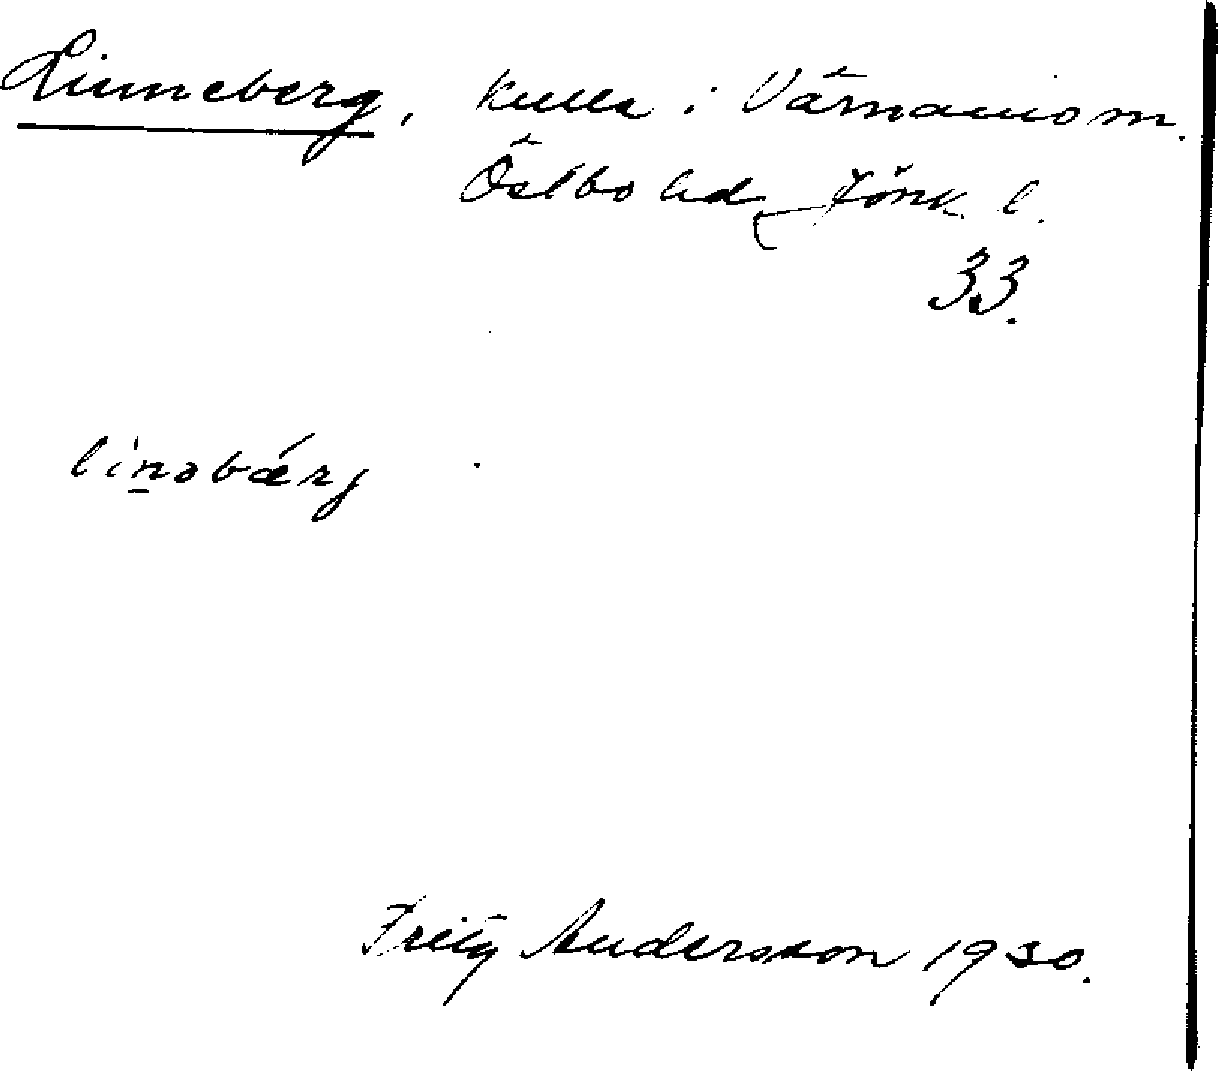 Linneberg, kulle i Värnamo sn.
Östbo hd, Jönk. l.
33.
lìnəbǽrj
Fritz Andersson 1930.